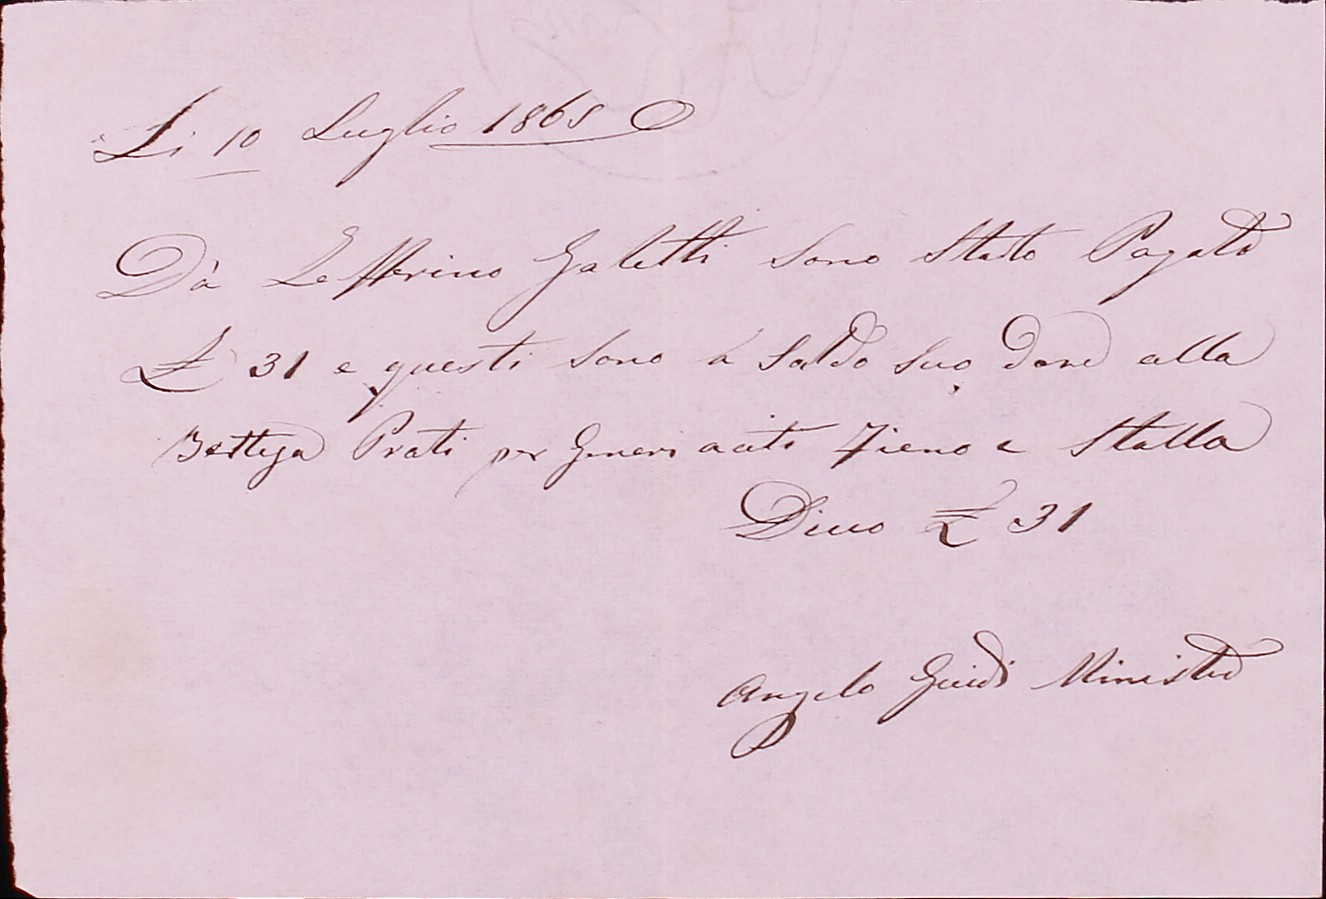 Li 10 Luglio 1865
Dà Zefferino Galetti Sono Stato Pagato
£ 31 e questi sono à Saldo Suo Dare alla
Bottega Prati per Generi aciti Fieno e Stalla
Dico £ 31
Angelo Guidi Ministro